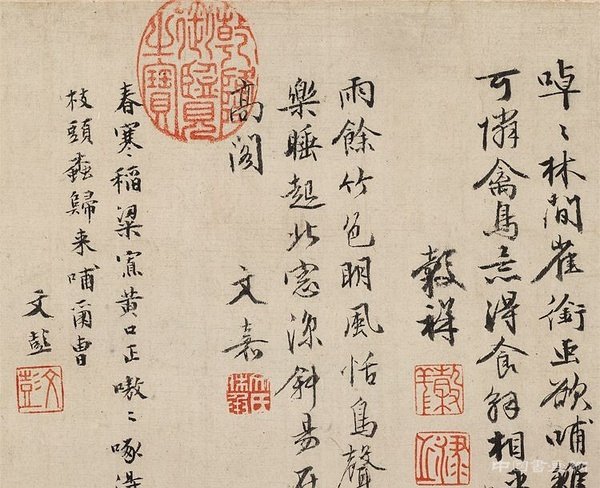 啅〻林間雀銜虫欲哺雛
可憐禽鳥意得食解相
穀祥
雨餘竹色明風恬鳥聲
樂睡起北窓深斜易在
高閣
文嘉
春寒稻粱窅黄口正嗷〻啄得
枝頭蟲歸来哺爾曹
文彭
乾隆御覽之寶
文彭